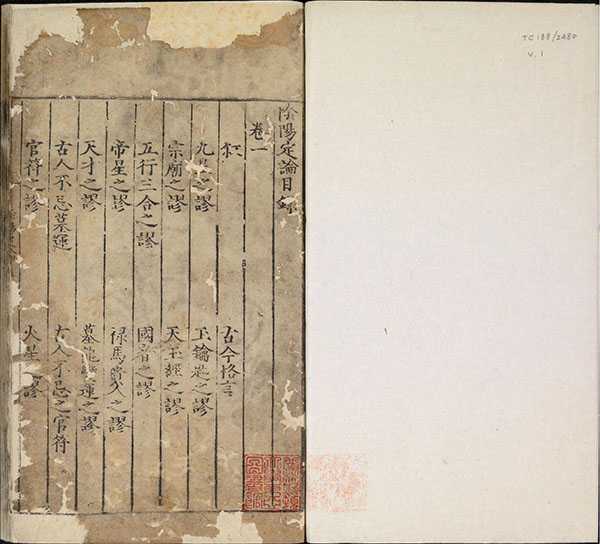 TC188/2480
V. 1
陰陽定論目錄
卷一
古今格言
九星之謬 玉鑰匙之謬
宗廟之謬 天玉經之謬
五行三合之謬 國音之謬
帝星之謬 祿馬貴人之謬
天才之謬 墓龍變運之謬
古人不忌墓運 古人不忌之官符
官符之謬 火星之謬